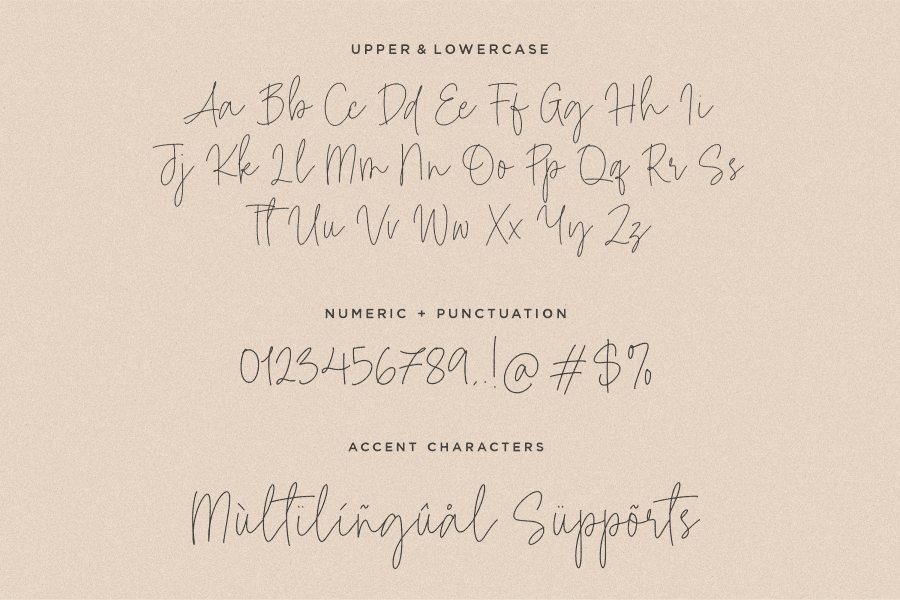 UPPER & LOWERCASE
Aa Bb Cc Dd Ee Ff Gg Hh Ii
Jj Kk Ll Mm Nn Oo Pp Qq Rr Ss
Tt Uu Vv Ww Xx Yy Zz
NUMERIC + PUNCTUATION
0123456789,.!@#$%
ACCENT CHARACTERS
Mùltïlíñgûål Süppõrts